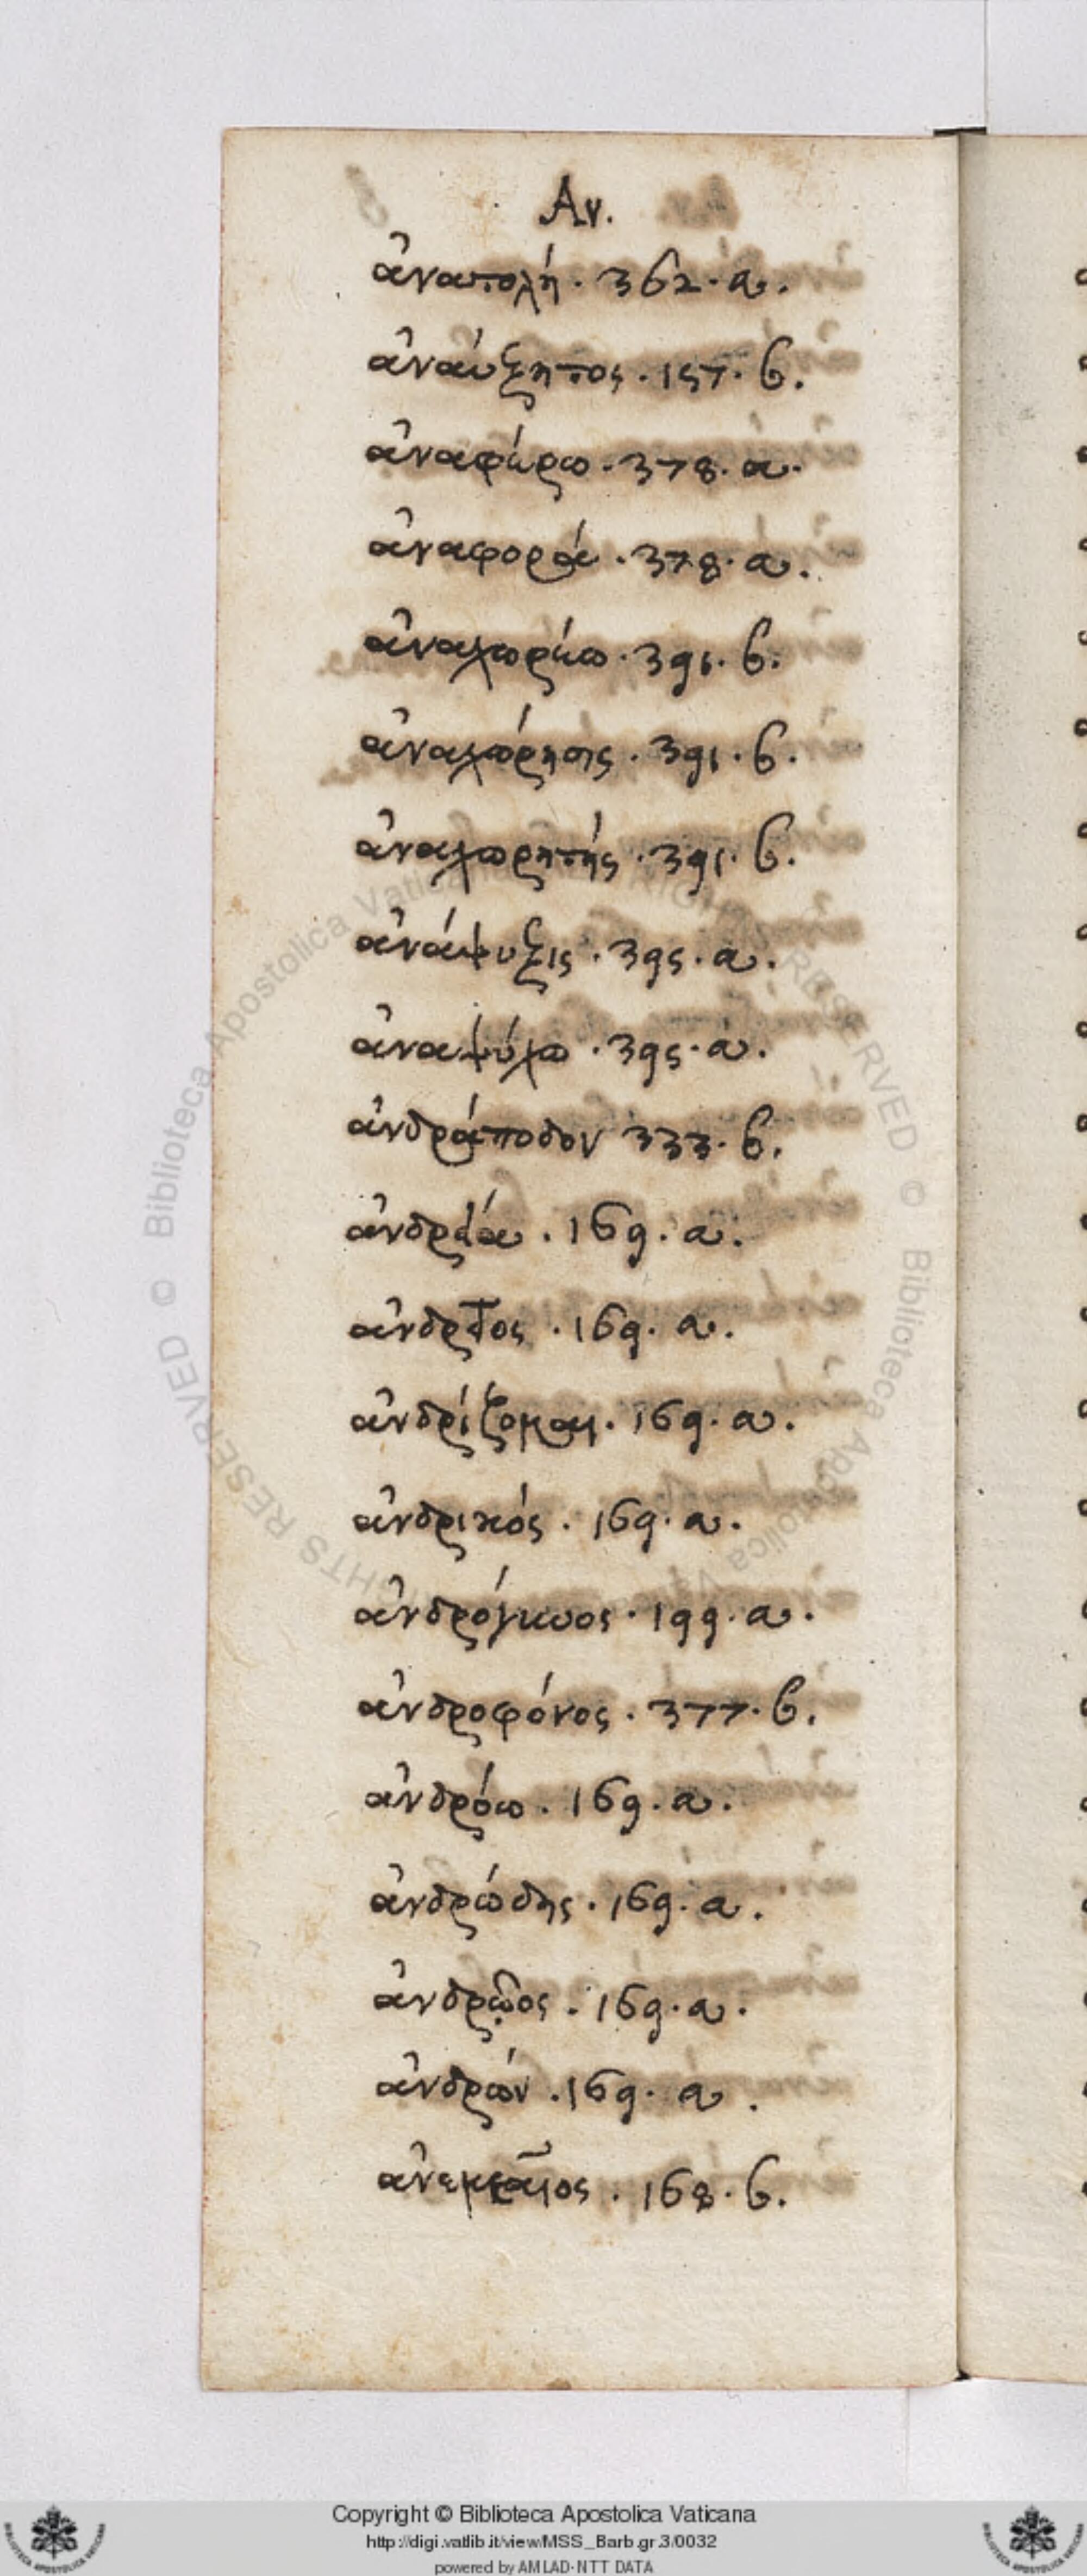 Αν.
ἀνατολή · 362 · a.
ἀναύξητος · 157 · b.
ἀναφέρω · 378 · a.
ἀναφορά · 378 · a.
ἀναχωρέω · 391 · b.
ἀναχώρησις · 391 · b.
ἀναχωρητής · 391 · b.
ἀνάψυξις · 395 · a.
ἀναψύχω · 395 · a.
ἀνδράποδον 333 · b.
ἀνδρεία · 169 · a.
ἀνδρεῖος · 169 · a.
ἀνδρίζομαι · 169 · a.
ἀνδρικός · 169 · a.
ἀνδρόγυνος · 199 · a.
ἀνδροφόνος · 377 · b.
ἀνδρόω · 169 · a.
ἀνδρώδης · 169 · a.
ἀνδρῷος · 169 · a.
ἀνδρών · 169 · a.
168 · b.
Copyright © Biblioteca Apostolica Vaticana
http://digi.vatlib.it/view/MSS_Barb.gr.3/0032
powered by AMLAD-NTT DATA